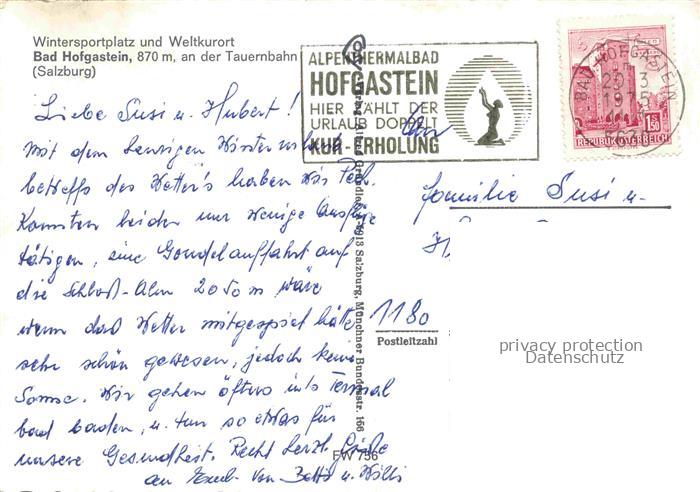 Wintersportplatz und Weltkurort
Bad Hofgastein, 870 m, an der Tauernbahn
(Salzburg)
ALPENTHERMALBAD
HOFGASTEIN
HIER ZÄHLT DER
URLAUB DOPPELT
KUR-ERHOLUNG
BAD HOFGASTEIN
20.3
1975
5630
1.50
REPUBLIK ÖSTERREICH
Liebe Susi u. Hubert!
Mit dem heurigen Winterurlaub
betreffs des Wetter's haben wir Pech.
Konnten leider nur wenige Ausflüge
tätigen, eine Gondelauffahrt auf
die Schloß-Alm 2050 m wäre
wenn das Wetter mitgespielt hätte
sehr schön gewesen, jedoch keine
Sonne. Wir gehen öfters ins Termal
bad baden, u. tun so etwas für
unsere Gesundheit. Recht herzl. Grüße
an Euch von Betti u. Willi
An
Familie Susi u.
1180
Postleitzahl
5013 Salzburg, Münchner Bundesstr. 156
FW 756
privacy protection
Datenschutz